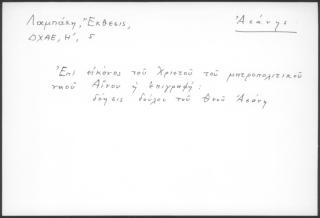 Λαμπάκη, "Εκθεσις,
ΔΧΑΕ, Η', 5
Ἀσάνης
Ἐπὶ εἰκόνος τοῦ Χριστοῦ τοῦ μητροπολιτικοῦ
ναοῦ Αἴνου ἡ ἐπιγραφή:
δέησις δούλου τοῦ Θεοῦ Ἀσάνη